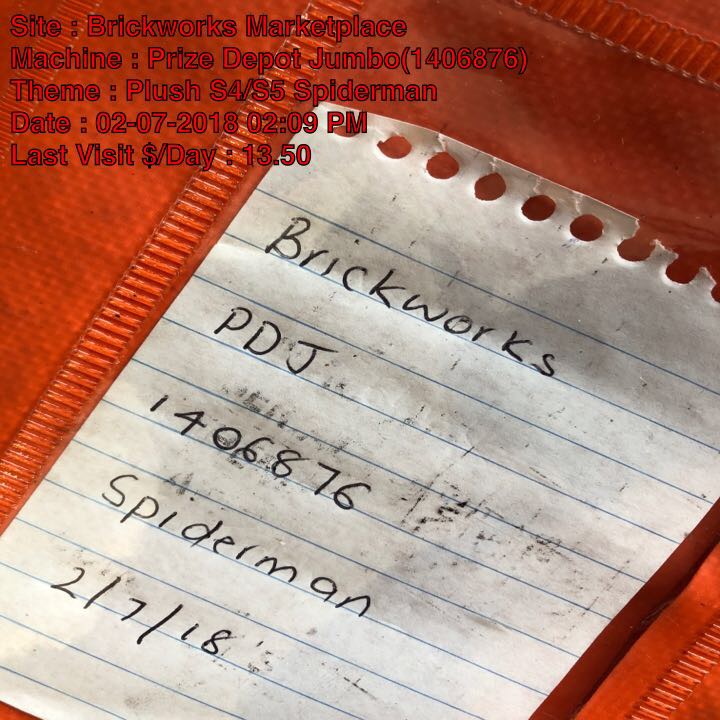 Site : Brickworks Marketplace
Machine : Prize Depot Jumbo(1406876)
Theme : Plush S4/S5 Spiderman
Date : 02-07-2018 02:09 PM
Last Visit $/Day : 13.50
Brickworks
PDJ
1406876
Spiderman
2/7/18